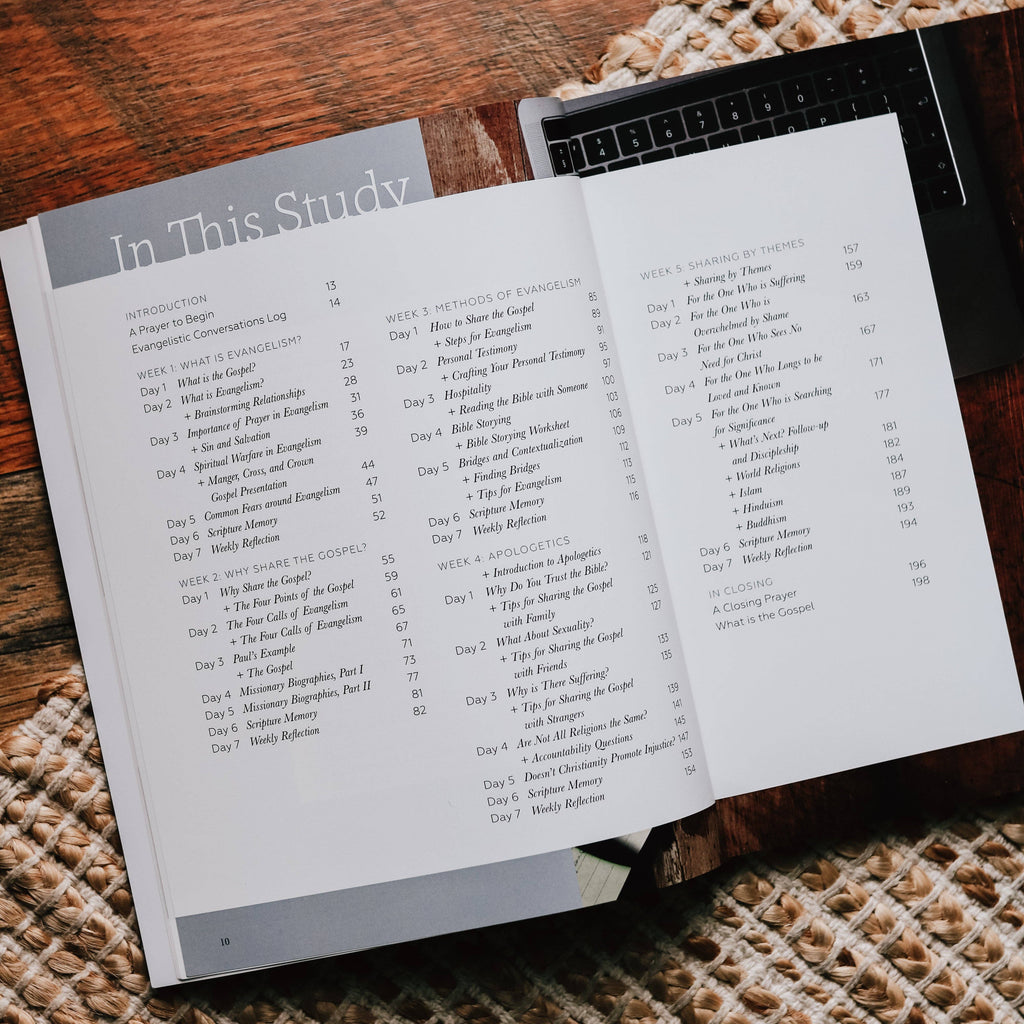 In This Study
INTRODUCTION
A Prayer to Begin 13
Evangelistic Conversations Log 14
WEEK 1: WHAT IS EVANGELISM?
Day 1 What is the Gospel? 17
Day 2 What is Evangelism? 23
+ Brainstorming Relationships 28
Day 3 Importance of Prayer in Evangelism 31
+ Sin and Salvation 36
Day 4 Spiritual Warfare in Evangelism 39
+ Manger, Cross, and Crown 44
Gospel Presentation
Day 5 Common Fears around Evangelism 47
Day 6 Scripture Memory 51
Day 7 Weekly Reflection 52
WEEK 2: WHY SHARE THE GOSPEL?
Day 1 Why Share the Gospel? 55
+ The Four Points of the Gospel 59
Day 2 The Four Calls of Evangelism 61
+ The Four Calls of Evangelism 65
Day 3 Paul's Example 67
+ The Gospel 71
Day 4 Missionary Biographies, Part I 73
Day 5 Missionary Biographies, Part II 77
Day 6 Scripture Memory 81
Day 7 Weekly Reflection 82
WEEK 3: METHODS OF EVANGELISM
Day 1 How to Share the Gospel 85
+ Steps for Evangelism 89
Day 2 Personal Testimony 91
+ Crafting Your Personal Testimony 95
Day 3 Hospitality 97
+ Reading the Bible with Someone 100
Day 4 Bible Storying 103
+ Bible Storying Worksheet 106
Day 5 Bridges and Contextualization 109
+ Finding Bridges 112
+ Tips for Evangelism 113
Day 6 Scripture Memory 115
Day 7 Weekly Reflection 116
WEEK 4: APOLOGETICS
+ Introduction to Apologetics 118
Day 1 Why Do You Trust the Bible? 121
+ Tips for Sharing the Gospel 125
with Family
Day 2 What About Sexuality? 127
+ Tips for Sharing the Gospel 133
with Friends
Day 3 Why is There Suffering? 135
+ Tips for Sharing the Gospel 139
with Strangers
Day 4 Are Not All Religions the Same? 141
+ Accountability Questions 145
Day 5 Doesn't Christianity Promote Injustice? 147
Day 6 Scripture Memory 153
Day 7 Weekly Reflection 154
WEEK 5: SHARING BY THEMES
+ Sharing by Themes 157
Day 1 For the One Who is Suffering 159
Day 2 For the One Who is 163
Overwhelmed by Shame
Day 3 For the One Who Sees No 167
Need for Christ
Day 4 For the One Who Longs to be 171
Loved and Known
Day 5 For the One Who is Searching 177
for Significance
+ What's Next? Follow-up 181
and Discipleship
+ World Religions 182
+ Islam 184
+ Hinduism 187
+ Buddhism 189
Day 6 Scripture Memory 193
Day 7 Weekly Reflection 194
IN CLOSING
A Closing Prayer 196
What is the Gospel 198
10
4 5 6 7 8 9 0
O P